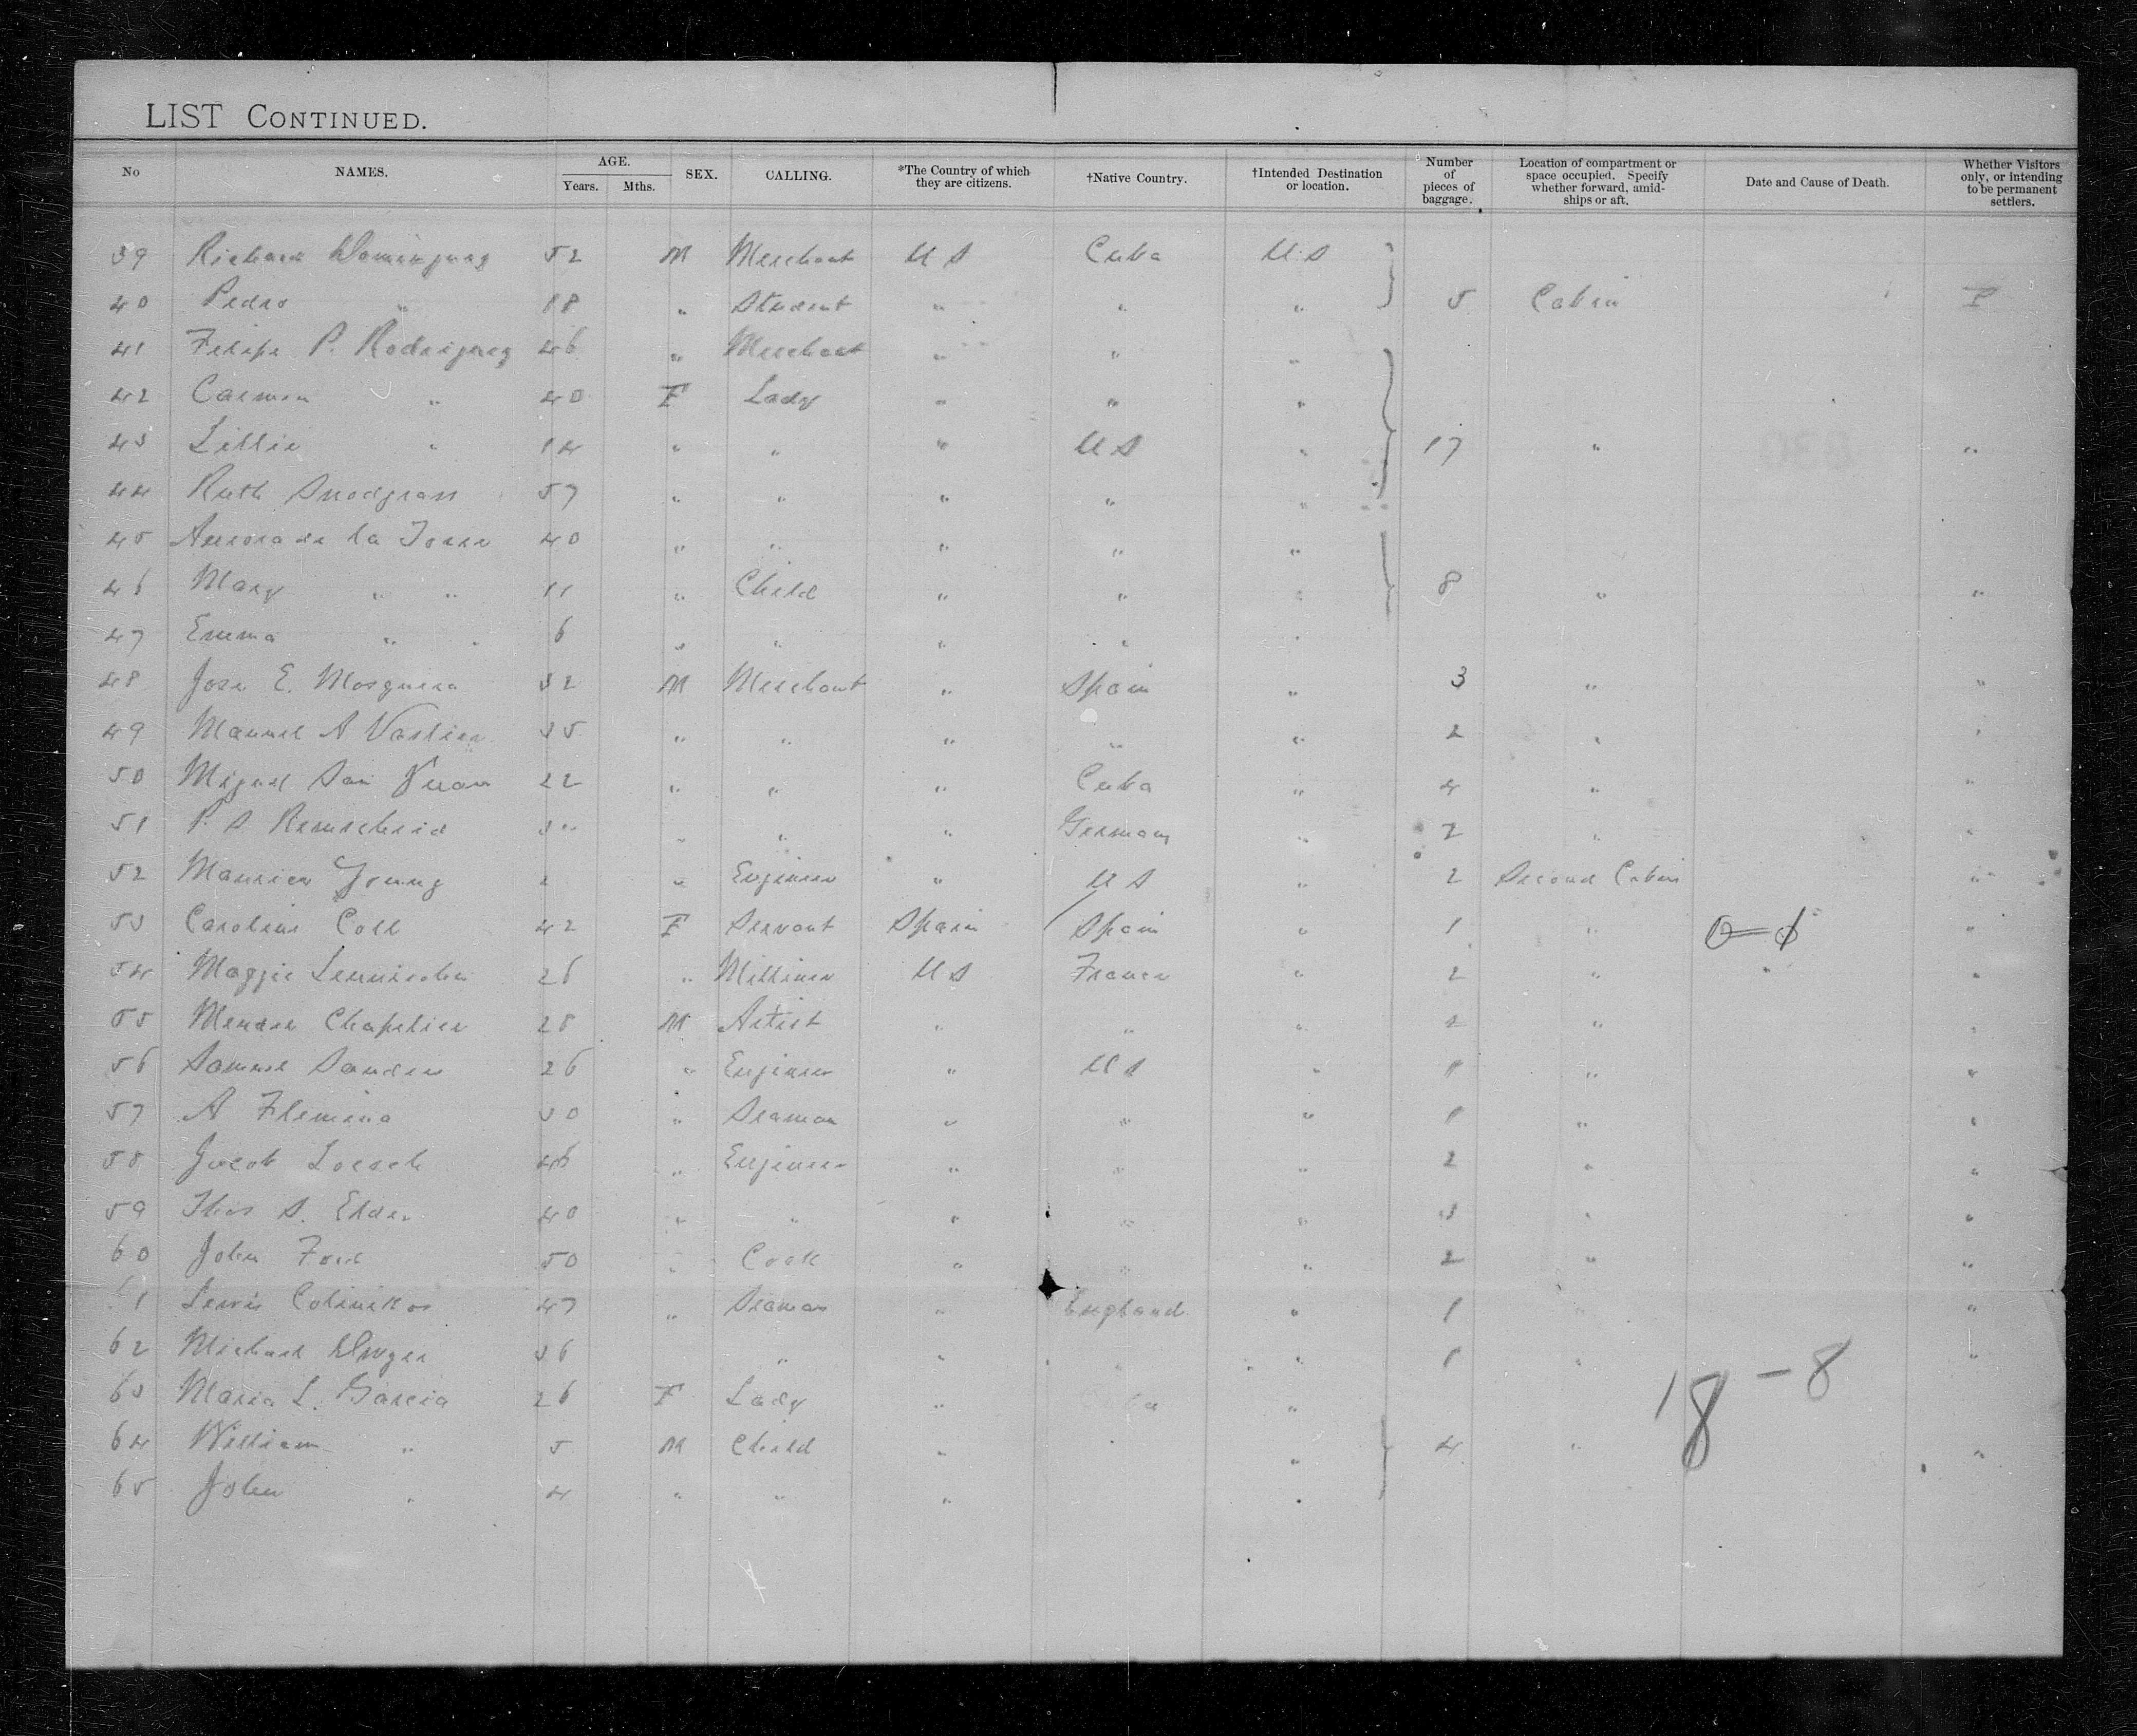 LIST CONTINUED.
No NAMES. AGE. Years. Mths. SEX. CALLING. *The Country of which they are citizens. †Native Country. †Intended Destination or location. Number of pieces of baggage. Location of compartment or space occupied. Specify whether forward, amidships or aft. Date and Cause of Death. Whether Visitors only, or intending to be permanent settlers.
39 Richard Dominguez 52 M Merchant U S Cuba U. S
40 Pedro " 18 " Student " " " 5 Cabin
41 Felipe P. Rodriguez 46 " Merchant " " "
42 Carmen " 40 F Lady " " "
43 Lillie " 14 " " " U S " 17 " "
44 Ruth Snodgrass 57 " " " " "
45 Aurora de la Torre 40 " " " " "
46 Mary " " 11 " Child " " " 8 " "
47 Emma " " 6 " " " " "
48 Jose E. Mosquera 32 M Merchant " Spain " 3 " "
49 Manuel A 35 " " " " " 2 " "
50 Miguel San Juan 22 " " " Cuba " 4 " "
51 P. S Remscheid " " " Germany " " "
52 Maurice Young " Engineer " U S " 2 Second Cabin "
53 Caroline Coll 42 F Servant Spain Spain " 1 " "
54 Maggie 26 " Milliner U S France " 2 " "
55 Chapelier 28 M Artist " " " 2 " "
56 Samuel Sanders 26 " Engineer " U S " 1 " "
57 A Fleming 30 " Seaman " " " 1 " "
58 Jacob Loesch 46 " Engineer " " " 2 " "
59 Thos S. Elder 40 " " " " " 3 " "
60 John Ford 50 " Cook " " " 2 " "
61 Lewis 47 " Seaman " England " 1 "
62 Michael Dwyer 36 " " " " 1 " "
63 Maria L. Garcia 26 F Lady " "
64 William " 5 M Child " " 4 " "
65 John " 4 " " " "
18 - 8